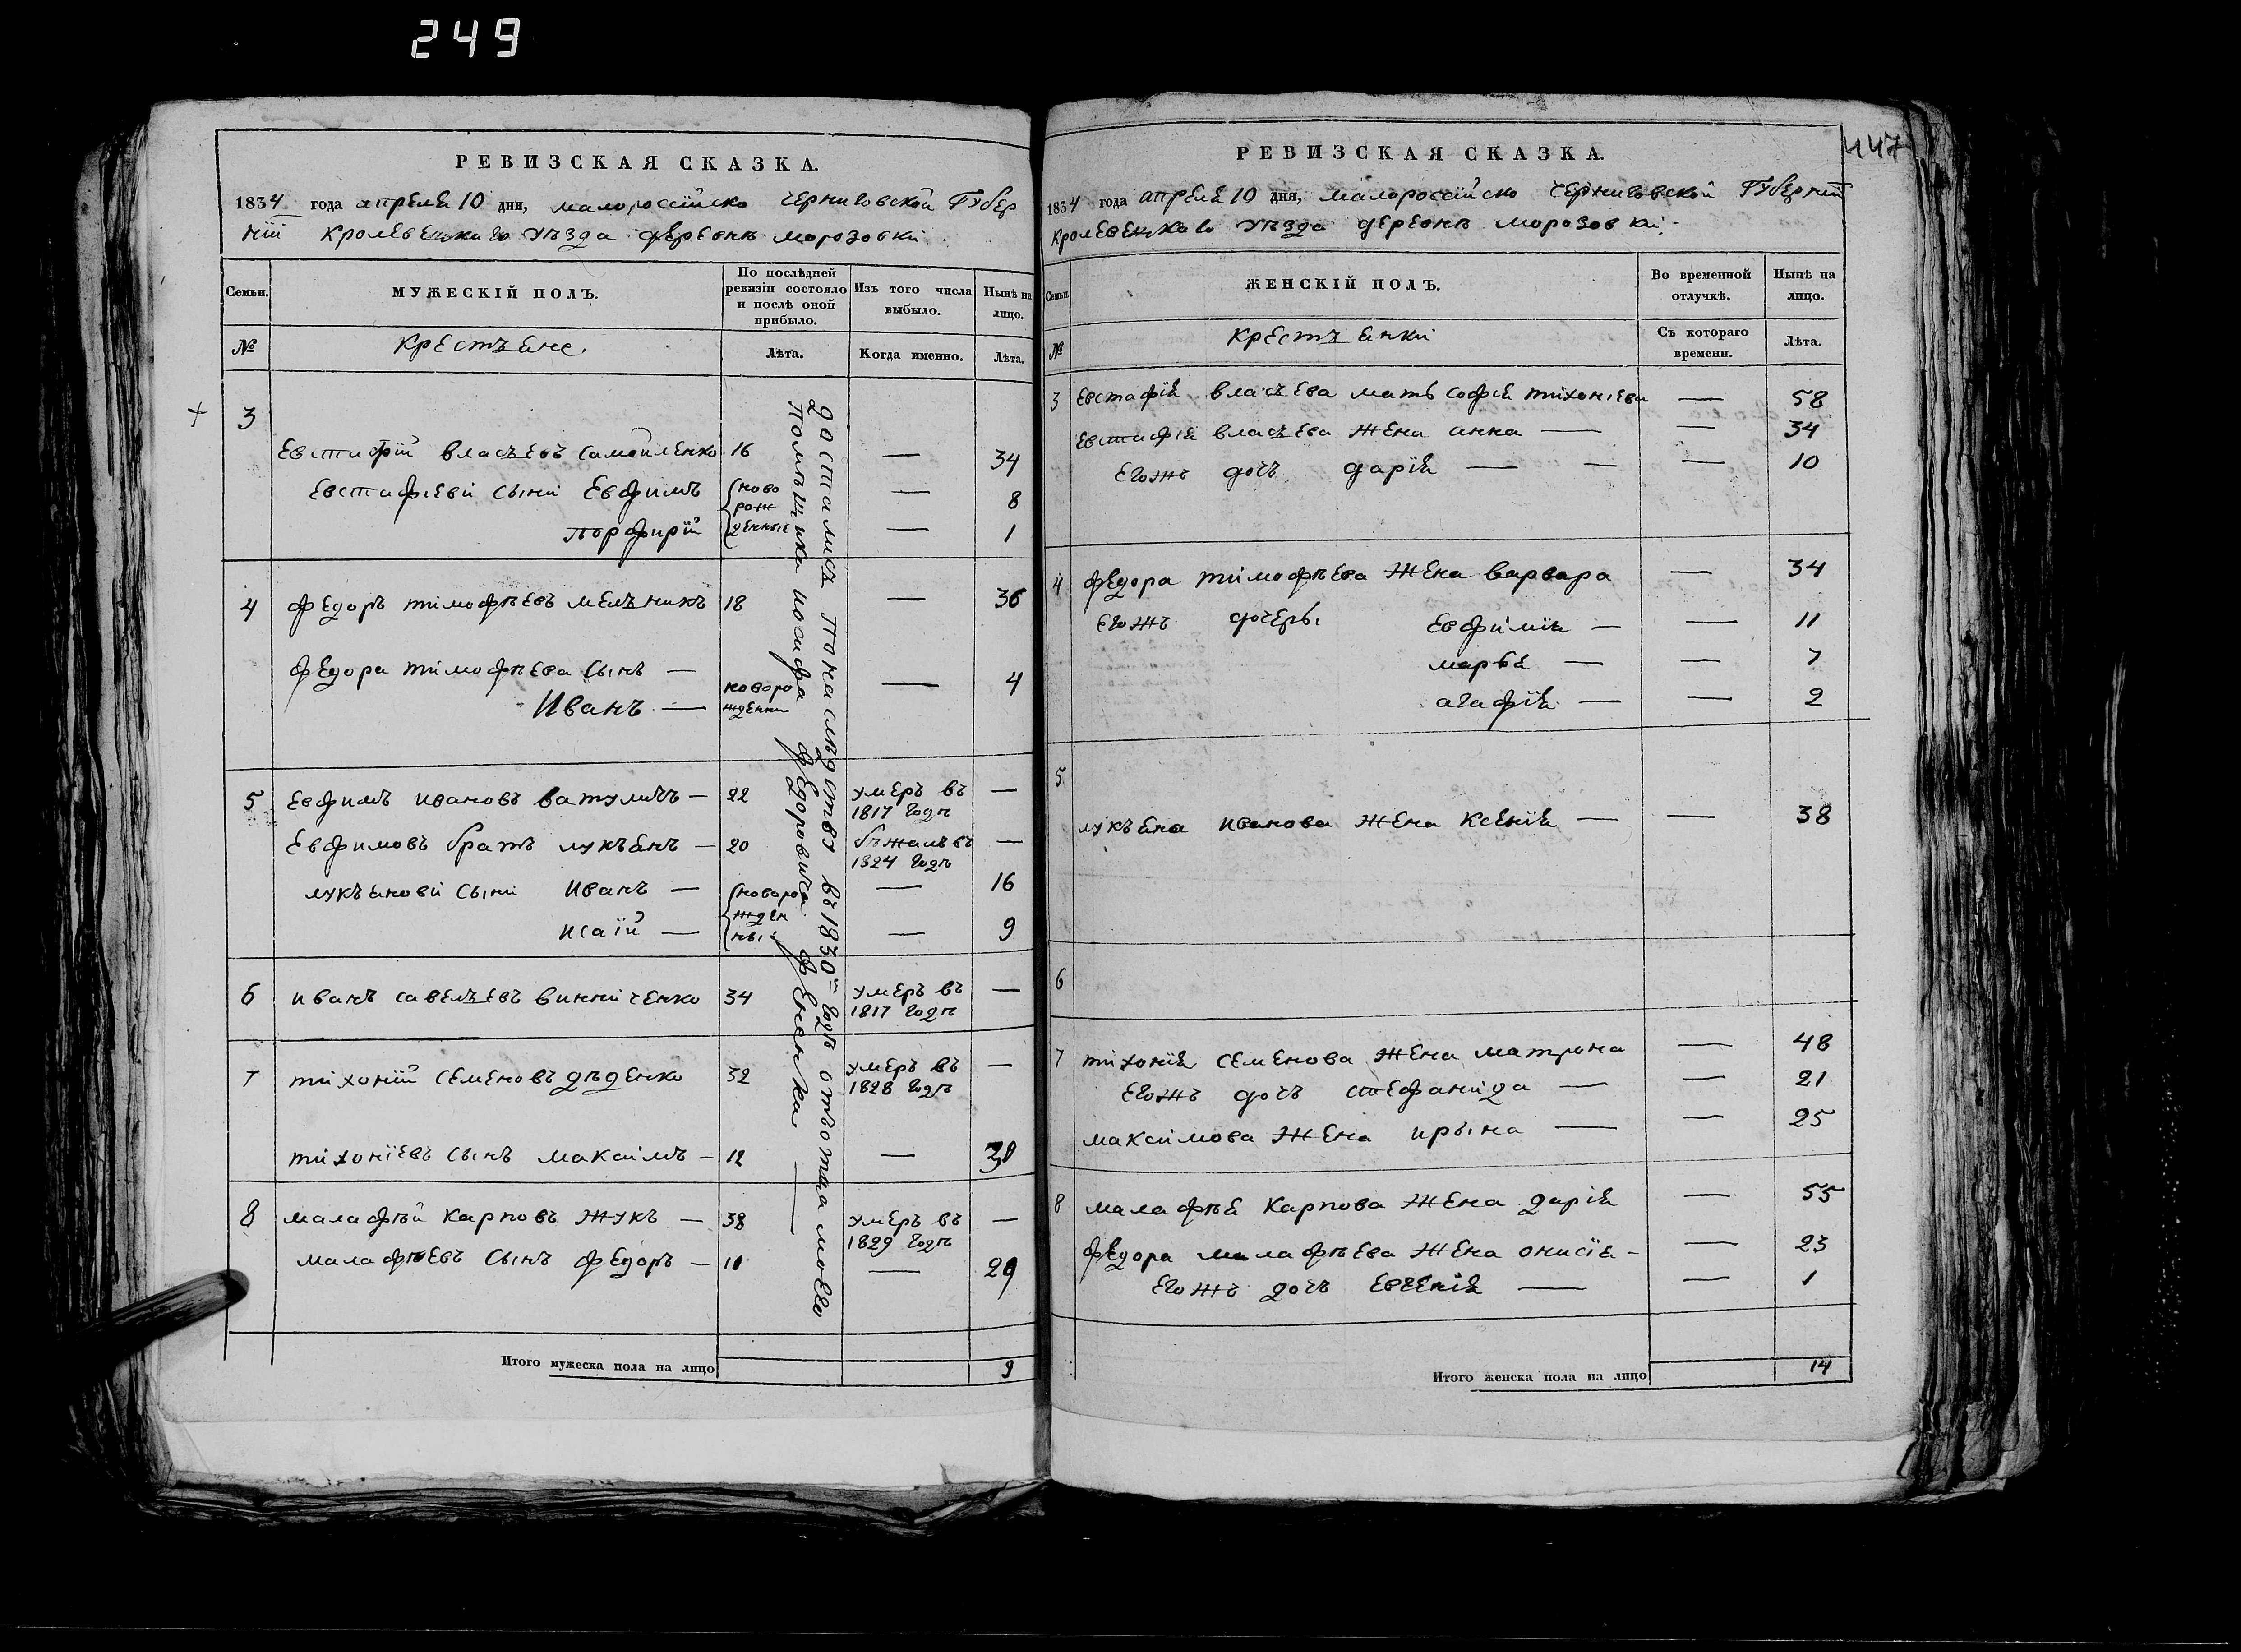 249
447
РЕВИЗСКАЯ СКАЗКА.
1834 года апреля 10 дни, малороссійско черниговской Губер
ніи кролевецкаго уѣзда деревнѣ морозовки
Семьи.
МУЖЕСКІЙ ПОЛЪ.
По послѣдней ревизіи состояло и послѣ оной прибыло.
Изъ того числа выбыло.
Нынѣ на лицо.
№
крестъяне.
Лѣта.
Когда именно.
Лѣта.
3
Евстафій власъевъ самойленко 16 — 34
Евстафіеви сыни Евфимъ ново — 8
порфирій рожденные — 1
4 федоръ тимофѣевъ мелъникъ 18 — 36
федора тимофѣева сынъ —
Иванъ — новорожденни — 4
5 Евфимъ ивановъ ватуличъ — 22 умеръ въ 1817 годѣ —
Евфимовъ братъ лукъянъ — 20 бѣжалъ въ 1824 годѣ —
лукъянови сыни иванъ — новорожден — 16
исаій — ныи — 9
6 иванъ савелъевъ винниченко 34 умеръ въ 1817 годѣ —
7 тихоній семеновъ дѣденко 32 умеръ въ 1828 годѣ —
тихоніевъ сынъ максимъ — 12 — 30
8 малафѣй карповъ жукъ — 38 умеръ въ 1829 годѣ —
малафѣевъ сынъ федоръ — 11 — 29
досталисъ понаслѣдству въ 1830м годѣ отъ отца моего
помѣщика иосифа федоровича фененка —
Итого мужеска пола на лицо 9
РЕВИЗСКАЯ СКАЗКА.
1834 года апреля 10 дня, малороссійско черниговской губерніи
кролевецкаго уѣзда деревнѣ морозовки.
Семьи.
ЖЕНСКІЙ ПОЛЪ.
Во временной отлучкѣ.
Нынѣ на лицо.
№
крестъянки
Съ котораго времени.
Лѣта.
3 Евстафія власъева мать софія тихоніева — 58
Евстафія власъева жена анна — — 34
егожъ дочъ дарія — — — 10
4 федора тимофѣева жена варвара — 34
егожъ дочеры Евфимія — — 11
марья — — 7
агафія — — 2
5
лукъяна иванова жена ксенія — — 38
6
7 тихонія семенова жена матрона — 48
егожъ дочъ стефанида — — 21
максимова жена ирына — — 25
8 малафѣя карпова жена дарія — 55
федора малафѣева жена онисія — — 23
егожъ дочъ евгенія — — 1
Итого женска пола на лицо 14